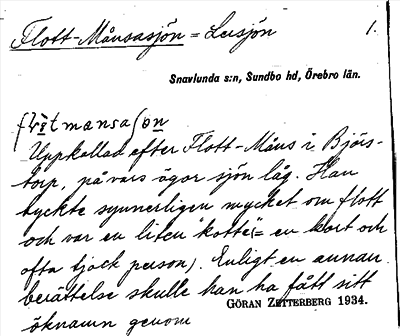 Flott-Månsasjön = Lersjön 1.
Snavlunda s:n, Sundbo hd, Örebro län.
Uppkallad efter Flott-Måns i Björs-
torp, på vars ägor sjön låg. Han
tyckte synnerligen mycket om flott
och var en liten "kotte" (= en kort och
ofta tjock person). Enligt en annan
berättelse skulle han ha fått sitt
GÖRAN ZETTERBERG 1934.
öknamn genom